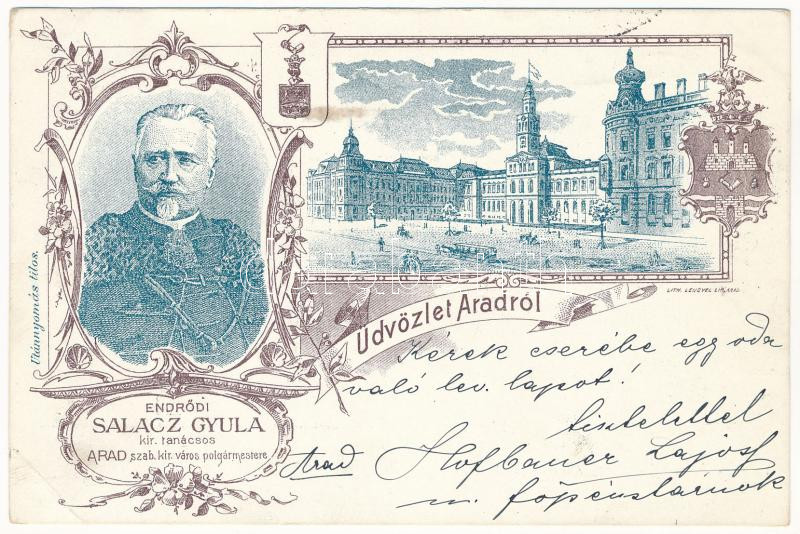 Utánnyomás tilos.
ENDRŐDI
SALACZ GYULA
kir. tanácsos
ARAD szab. kir. város polgármestere
LITH. LENGYEL L. ARAD.
Üdvözlet Aradról
Kérek cserébe egy oda
való lev. lapot!
tisztelettel
Arad Hofbauer Lajos
m. főpénztárnok